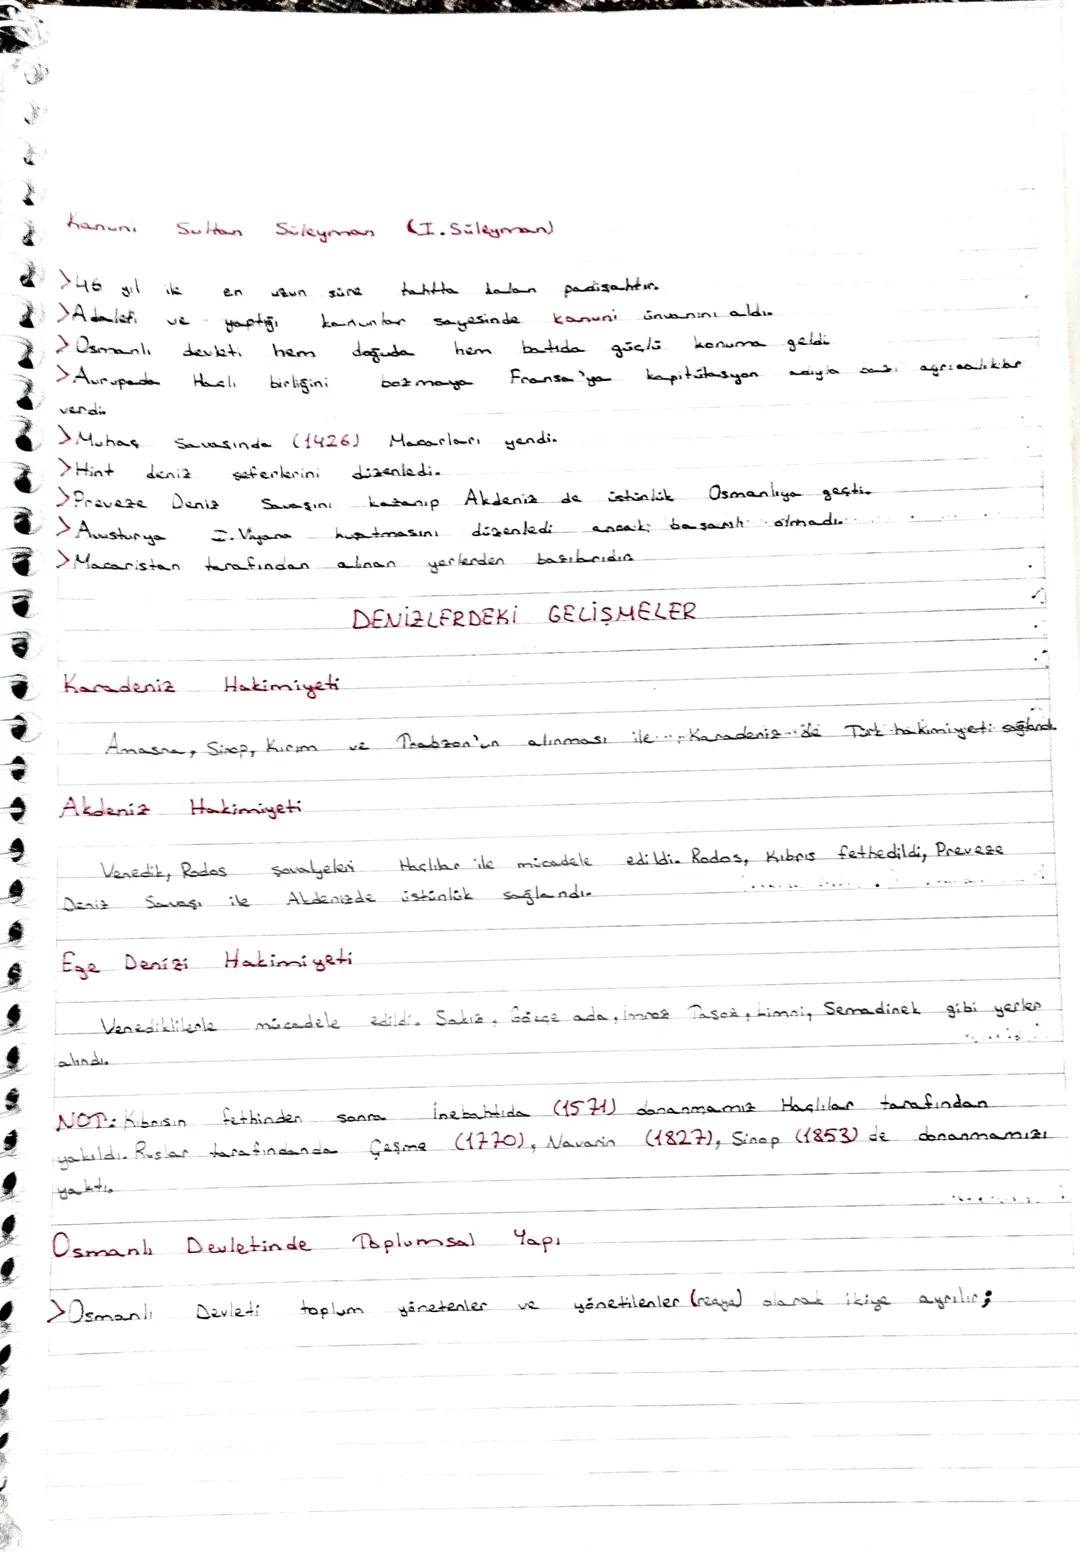 Kanuni Sultan Süleyman (I.Süleyman)
>46 yıl ile en uzun süre tahtta kalan padişahtır.
>Adaleti ve yaptığı kanunlar sayesinde kanuni ünvanını aldı.
>Osmanlı devleti hem doğuda hem batıda güçlü konuma geldi
>Avrupada Haçlı birliğini bozmaya Fransa'ya kapitülasyon adıyla bazı ayrıcalıklar
verdi.
>Mohaç Savaşında (1426) Macarları yendi.
>Hint deniz seferlerini düzenledi.
>Preveze Deniz Savaşını kazanıp Akdeniz de üstünlük Osmanlıya geçti.
>Avusturya I.Viyana kuşatmasını düzenledi ancak; başarılı olmadı.
>Macaristan tarafından alınan yerlerden
DENİZLERDEKİ GELİŞMELER
Karadeniz Hakimiyeti
Amasra, Sinop, Kırım ve Trabzon'un alınması ile Karadeniz de Türk hakimiyeti sağlandı.
Akdeniz Hakimiyeti
Venedik, Rodos şovalyeleri Haçlılar ile mücadele edildi. Rodos, Kıbrıs fethedildi, Preveze
Deniz Savaşı ile Akdenizde üstünlük sağlandı.
Ege Denizi Hakimiyeti
Venediklilerle mücadele edildi. Sakız, Gökçe ada, İmroz Taşoz, Limni, Semadirek gibi yerler
alındı.
NOT: Kıbrısın fethinden sonra İnebahtıda (1571) donanmamız Haçlılar tarafından
yakıldı. Ruslar tarafındanda Çeşme (1770), Navarin (1827), Sinop (1853) de donanmamızı
yaktı.
Osmanlı Devletinde Toplumsal Yapı
>Osmanlı Devleti toplum yönetenler ve yönetilenler (reaya) olarak ikiye ayrılır;